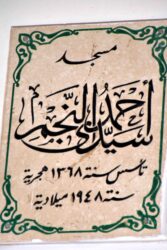 مسجد
سيدي أحمد أبي النجم
تأسس سنة ١٣٦٨ هجرية
سنة ١٩٤٨ ميلادية